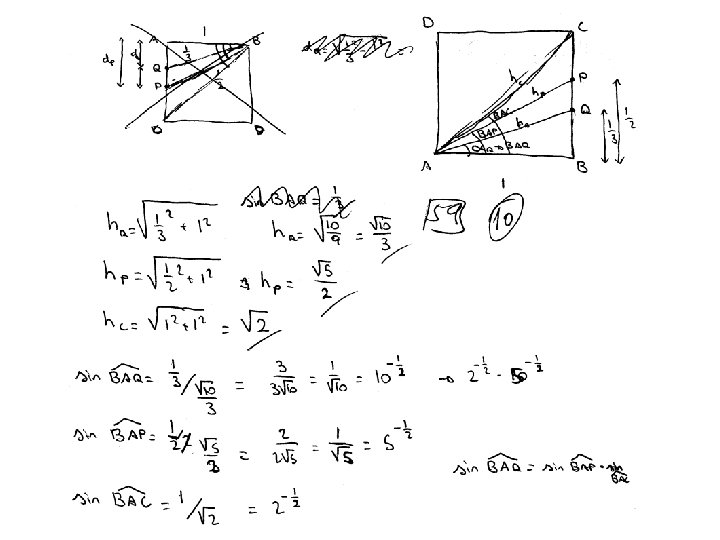 1
A B
1/3
Q
P
1/2
D
D C
h_c
P
h_P
h_Q
Q
BAP
BAQ
1/3 1/2
A B
1
h_Q = √(1/3² + 1²) h_Q = √(10/9) = √10/3
59 10
h_P = √(1/2² + 1²) → h_P = √5/2
h_C = √(1² + 1²) = √2
sin BAQ = 1/3 / √10/3 = 3/3√10 = 1/√10 = 10^(-1/2) → 2^(-1/2) · 5^(-1/2)
sin BAP = 1/2 / √5/2 = 2/2√5 = 1/√5 = 5^(-1/2)
sin BAQ = sin BAP · sin BAC
sin BAC = 1/√2 = 2^(-1/2)